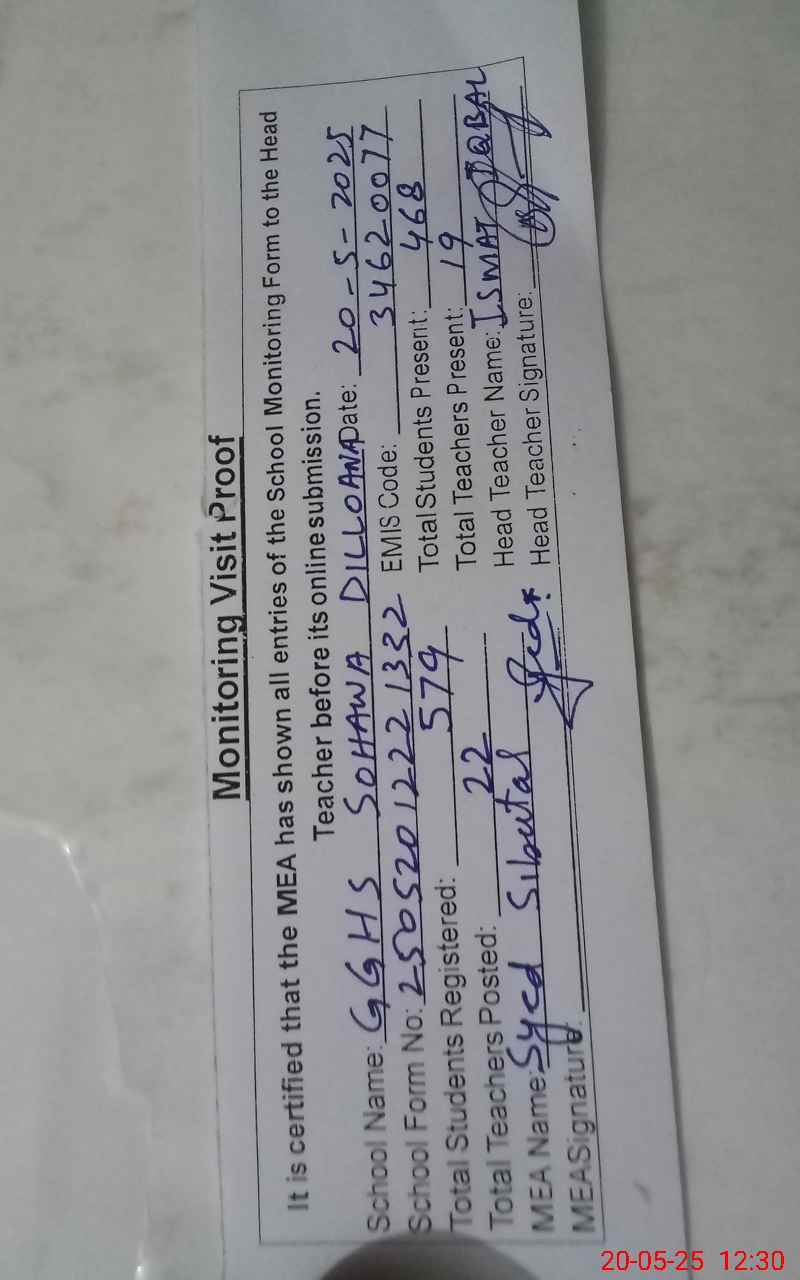 Monitoring Visit Proof
It is certified that the MEA has shown all entries of the School Monitoring Form to the Head
Teacher before its online submission.
School Name: GGHS SOHAWA DILLOANA Date: 20-5-2025
School Form No: 25052012221332 EMIS Code: 34620077
Total Students Registered: 579 Total Students Present: 468
Total Teachers Posted: 22 Total Teachers Present: 19
MEA Name: Syed Sibutal Head Teacher Name: ISMAT IQBAL
MEASignature: Head Teacher Signature:
20-05-25 12:30